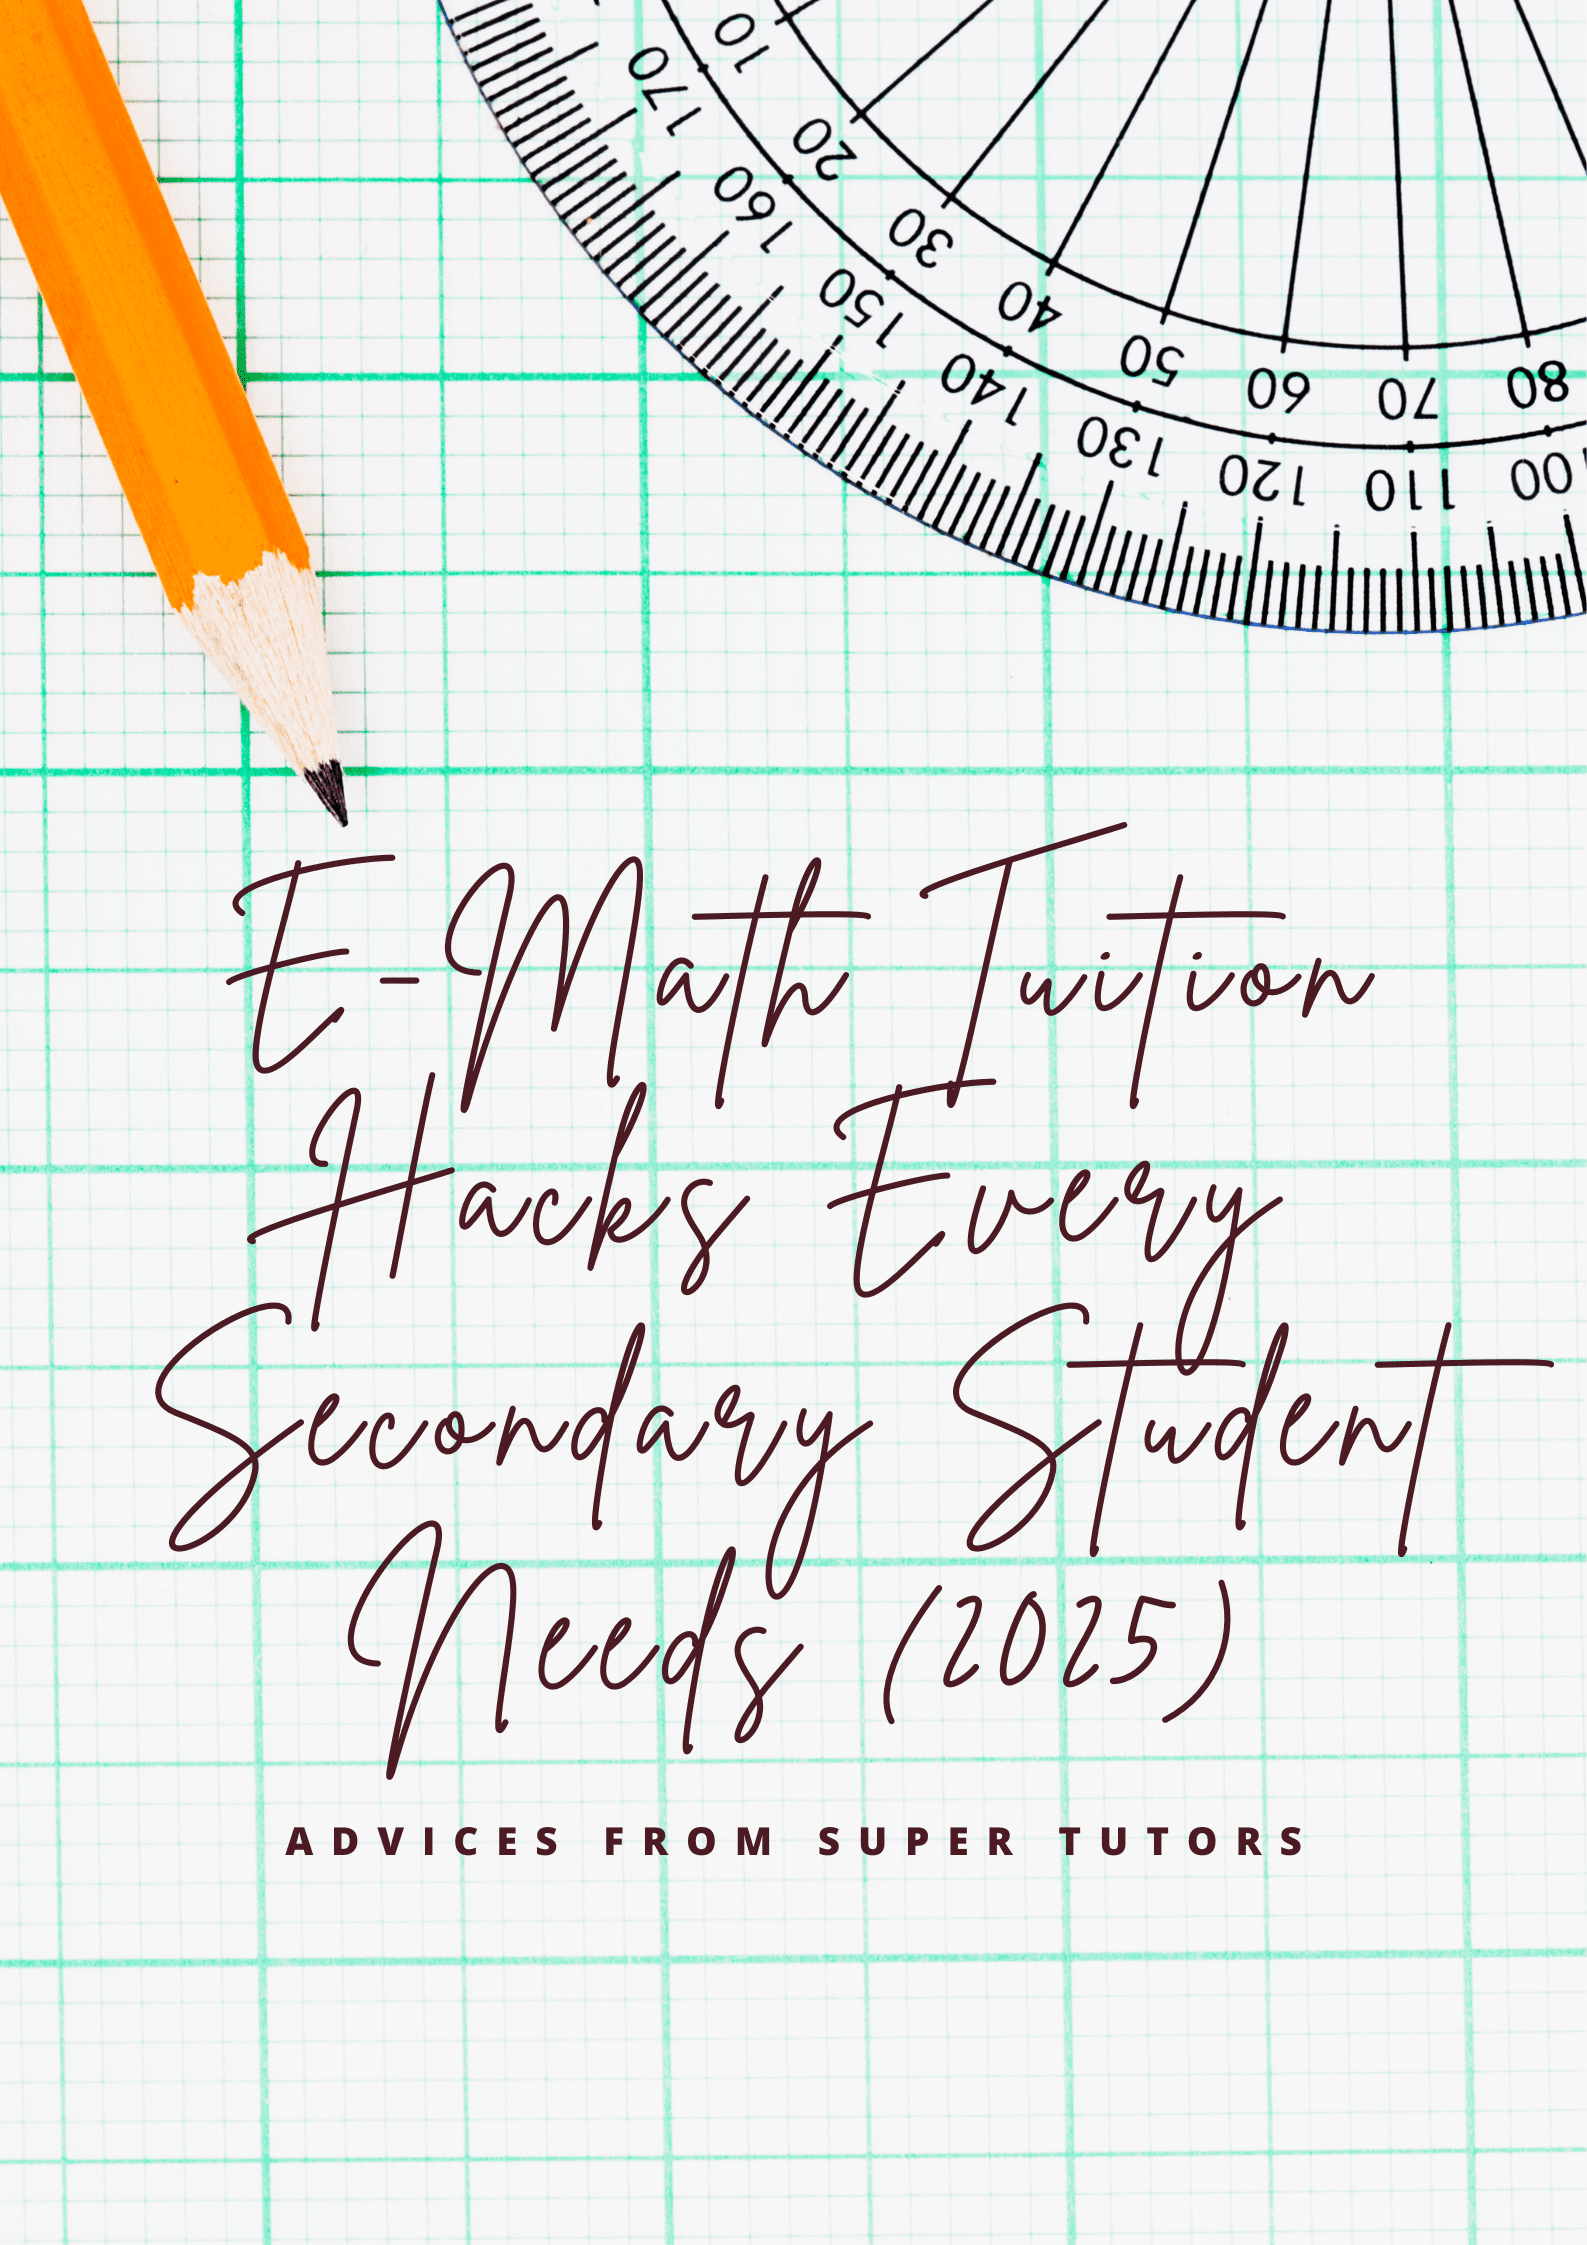 10
170
20
160
30
150
40
140
50
130
60
120
70
110
80
100
E-Math Tuition
Hacks Every
Secondary Student
Needs (2025)
ADVICES FROM SUPER TUTORS